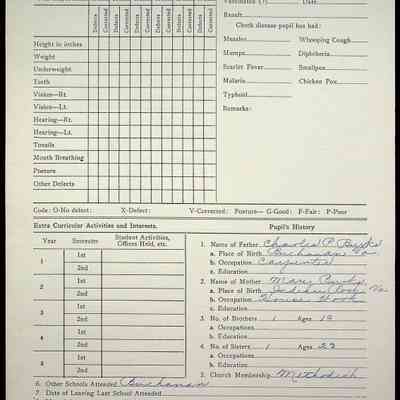 Vaccinated (?) Date
Result
Check disease pupil has had:
Defects Corrected Defects Corrected Defects Corrected Defects Corrected Defects Corrected Defects Corrected
Height in inches
Weight
Underweight
Teeth
Vision—Rt.
Vision—Lt.
Hearing—Rt.
Hearing—Lt.
Tonsils
Mouth Breathing
Posture
Other Defects
Measles Whooping Cough
Mumps Diphtheria
Scarlet Fever Smallpox
Malaria Chicken Pox
Typhoid
Remarks:
Code: O-No defect: X-Defect: V-Corrected: Posture— G-Good: F-Fair: P-Poor
Extra Curricular Activities and Interests.
Year Semester Student Activities, Offices Held, etc.
1 1st
2nd
2 1st
2nd
3 1st
2nd
4 1st
2nd
5 1st
2nd
Pupil's History
1. Name of Father Charles P.
a. Place of Birth Buchanan Va
b. Occupation Carpenter
c. Education
2. Name of Mother Mary
a. Place of Birth Indian Rock Va
b. Occupation House Work
c. Education
3. No. of Brothers 1 Ages 19
a. Occupations
b. Education
4. No. of Sisters 1 Ages 22
a. Occupations
b. Education
5. Church Membership Methodist
6. Other Schools Attended Buchanan
7. Date of Leaving Last School Attended